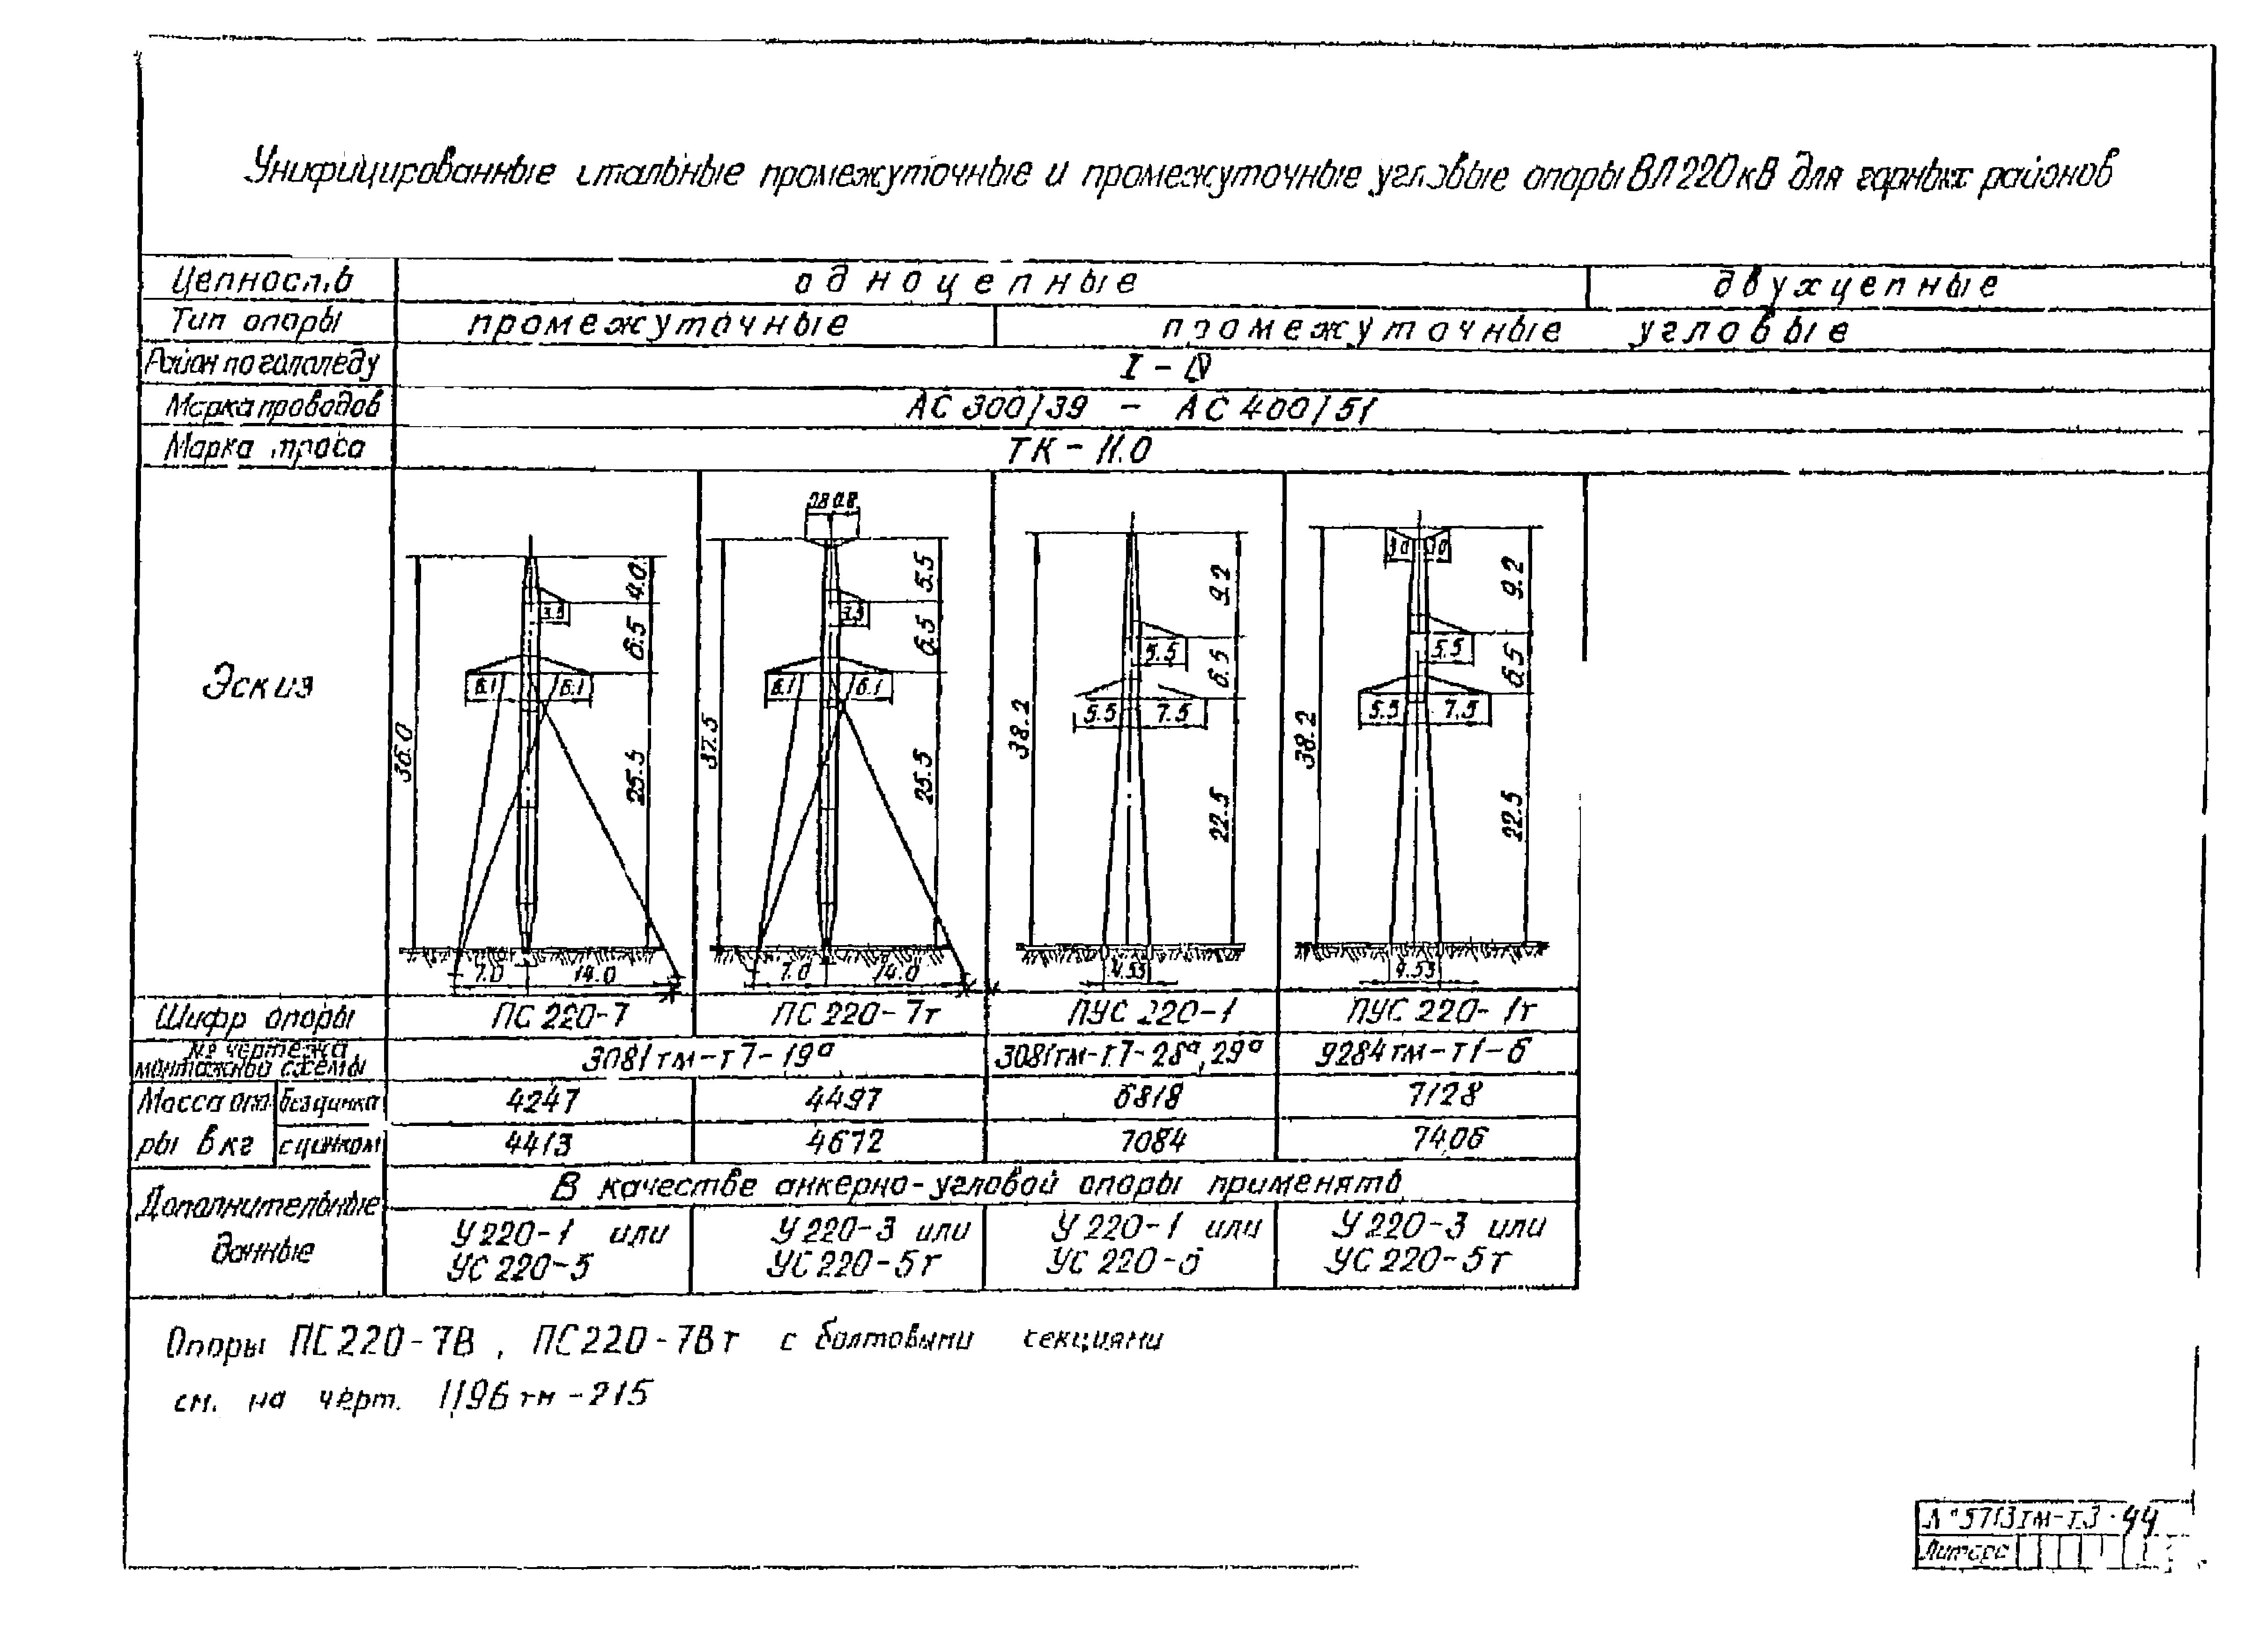 Унифицированные стальные промежуточные и промежуточные угловые опоры ВЛ 220 кВ для горных районов
Цепность одноцепные двухцепные
Тип опоры промежуточные промежуточные угловые
Район по гололеду I - IV
Марка проводов АС 300/39 - АС 400/51
Марка троса ТК - 11.0
Эскиз
36.0 4.0 6.5 25.5 3.5 6.1 6.1 7.0 14.0
0.8 0.8 37.5 5.5 6.5 25.5 3.5 6.1 6.1 7.0 14.0
38.2 9.2 6.5 22.5 5.5 5.5 7.5 4.53
3.0 3.0 38.2 9.2 6.5 22.5 5.5 5.5 7.5 4.53
Шифр опоры ПС 220-7 ПС 220-7т ПУС 220-1 ПУС 220-1т
№ чертежа
монтажной схемы 3081тм-т7-19а 3081тм-т7-28а, 29а 9284тм-т1-6
Масса опо- без цинка 4247 4497 6818 7128
ры в кг с цинком 4413 4672 7084 7406
Дополнительные данные
В качестве анкерно-угловой опоры применять
У 220-1 или У 220-3 или У 220-1 или У 220-3 или
УС 220-5 УС 220-5т УС 220-5т
Опоры ПС220-7В, ПС220-7Вт с болтовыми секциями
см. на черт. 1196тм-215
№ 5713тм-т.3-44
Литера